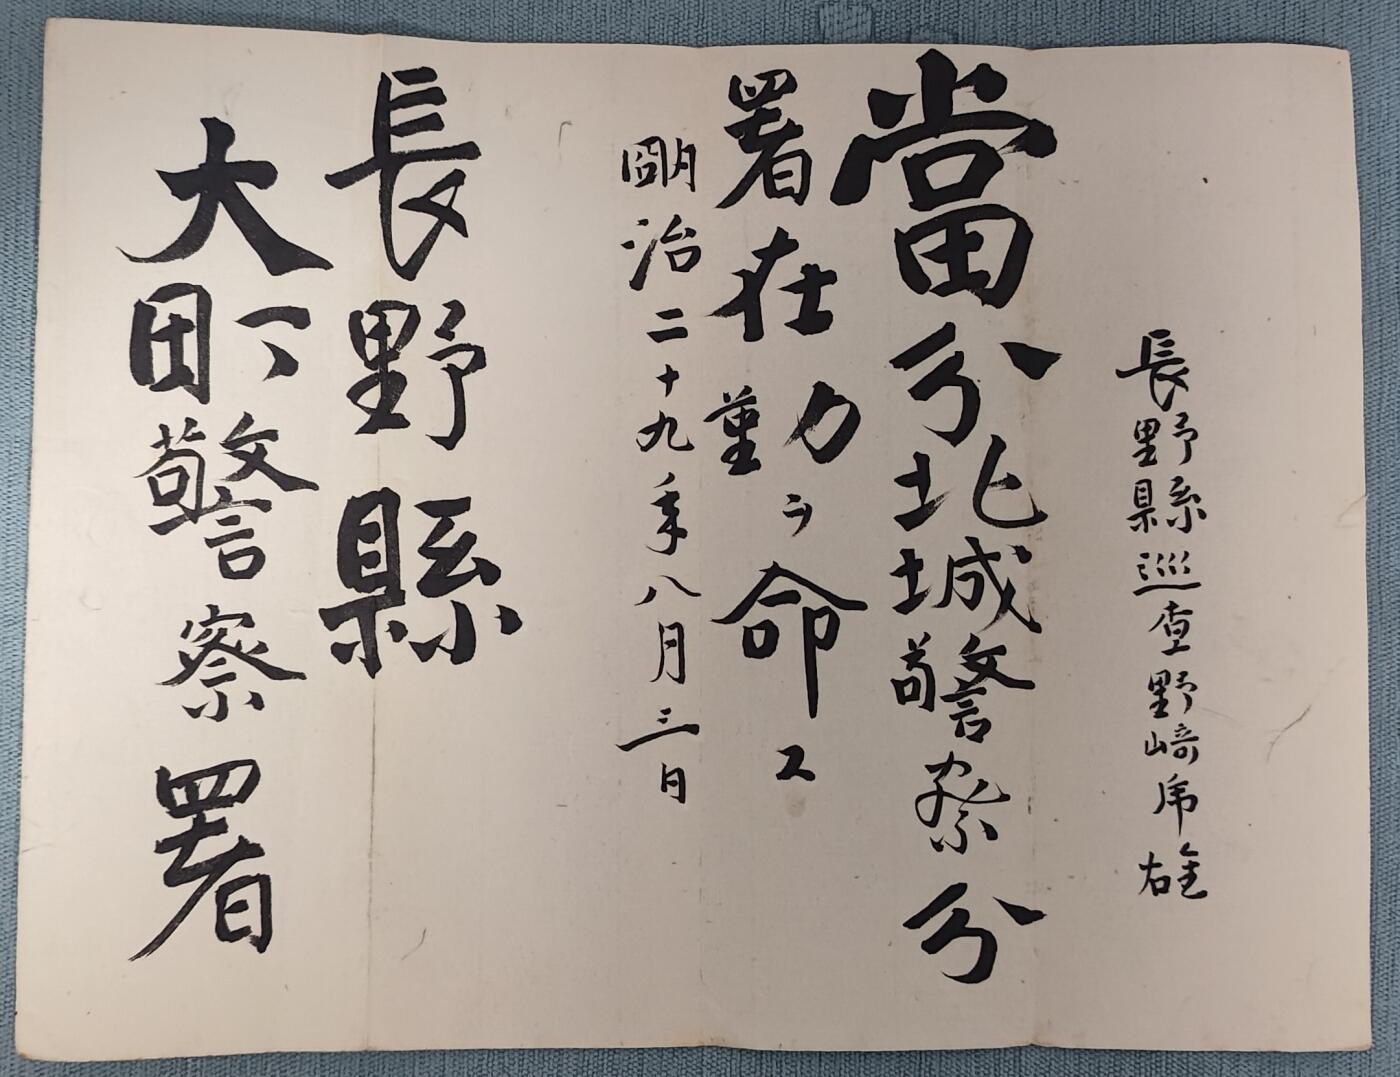 長野縣巡査野崎乕雄
當分北城警察分
署在勤ヲ命ス
朙治二十九年八月三日
長野縣
大町警察署